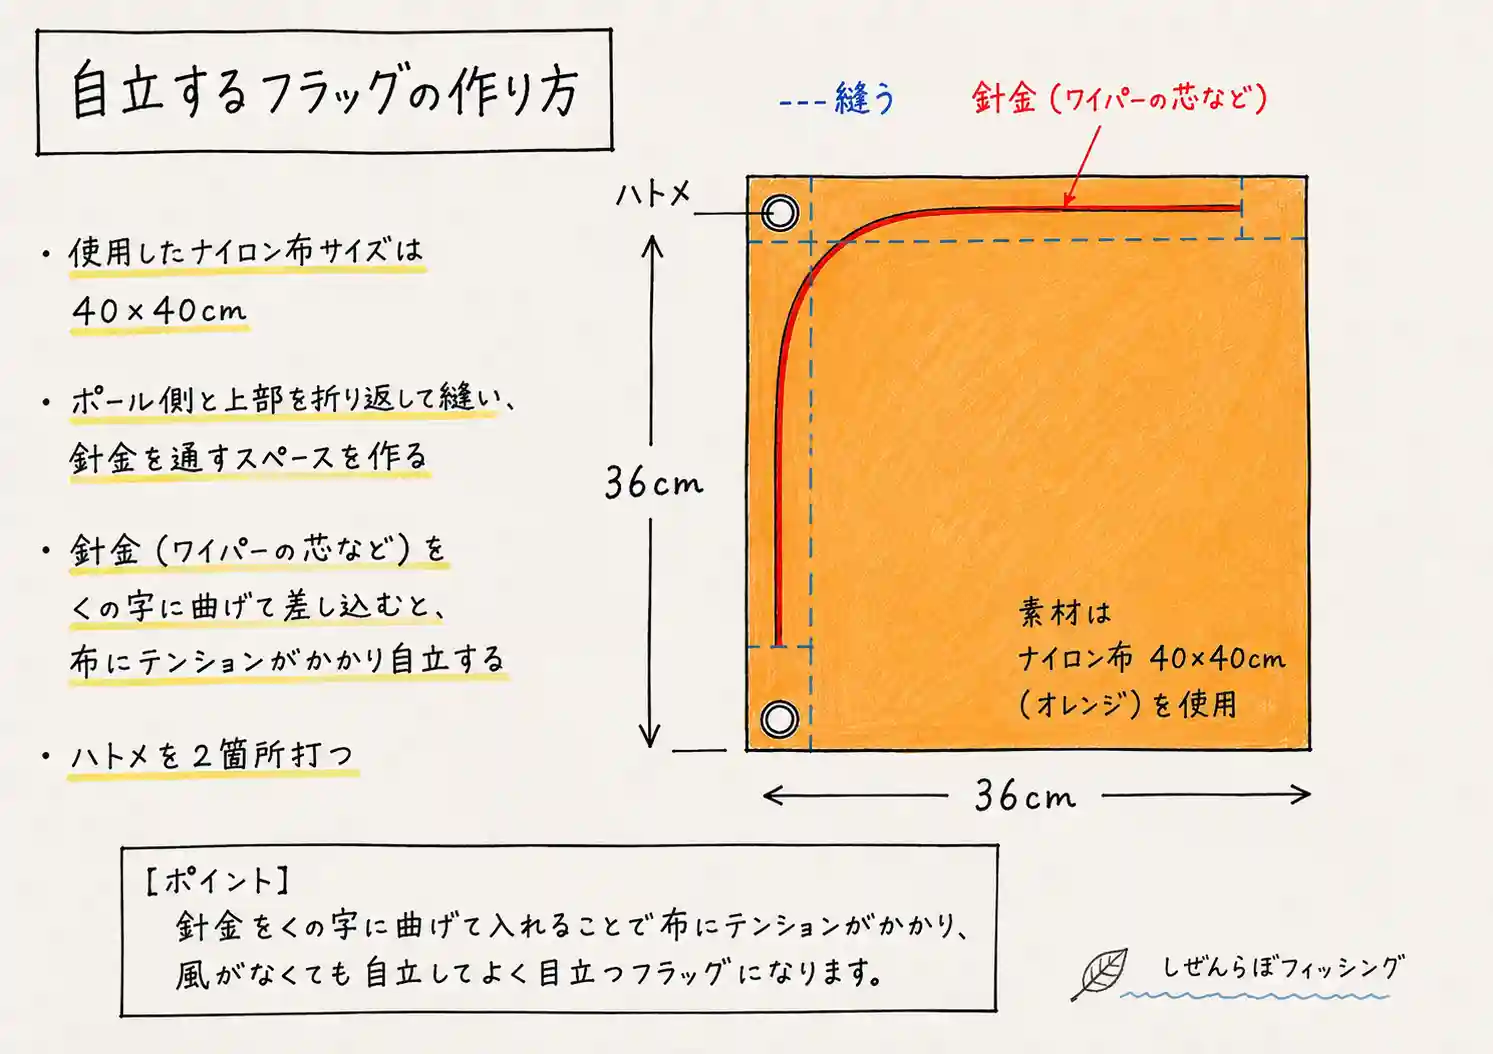 自立するフラッグの作り方
・使用したナイロン布サイズは
40×40cm
・ポール側と上部を折り返して縫い、
針金を通すスペースを作る
・針金(ワイパーの芯など)を
くの字に曲げて差し込むと、
布にテンションがかかり自立する
・ハトメを2箇所打つ
---縫う
針金(ワイパーの芯など)
ハトメ
36cm
素材は
ナイロン布 40×40cm
(オレンジ)を使用
36cm
[ポイント]
針金をくの字に曲げて入れることで布にテンションがかかり、
風がなくても自立してよく目立つフラッグになります。
しぜんらぼフィッシング